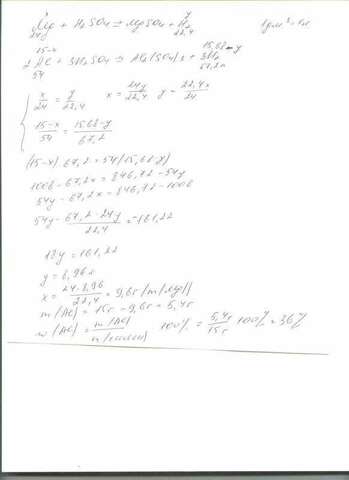 x y
Mg + H2SO4 = MgSO4 + H2 1дм³ = 1л
24г 22,4
15-x 15,68-y
2Al + 3H2SO4 = Al2(SO4)3 + 3H2
54 67,2л
x/24 = y/22,4 x = 24y/22,4 y = 22,4x/24
15-x/54 = 15,68-y/67,2
(15-x) 67,2 = 54(15,68-y)
1008 - 67,2x = 846,72 - 54y
54y - 67,2x = 846,72 - 1008
54y - 67,2 · 24y/22,4 = -161,22
18y = 161,22
y = 8,96л
x = 24·8,96/22,4 = 9,6г (m(Mg))
m(Al) = 15г - 9,6г = 5,4г
w(Al) = m(Al)/m(смеси) 100% = 5,4г/15г 100% = 36%